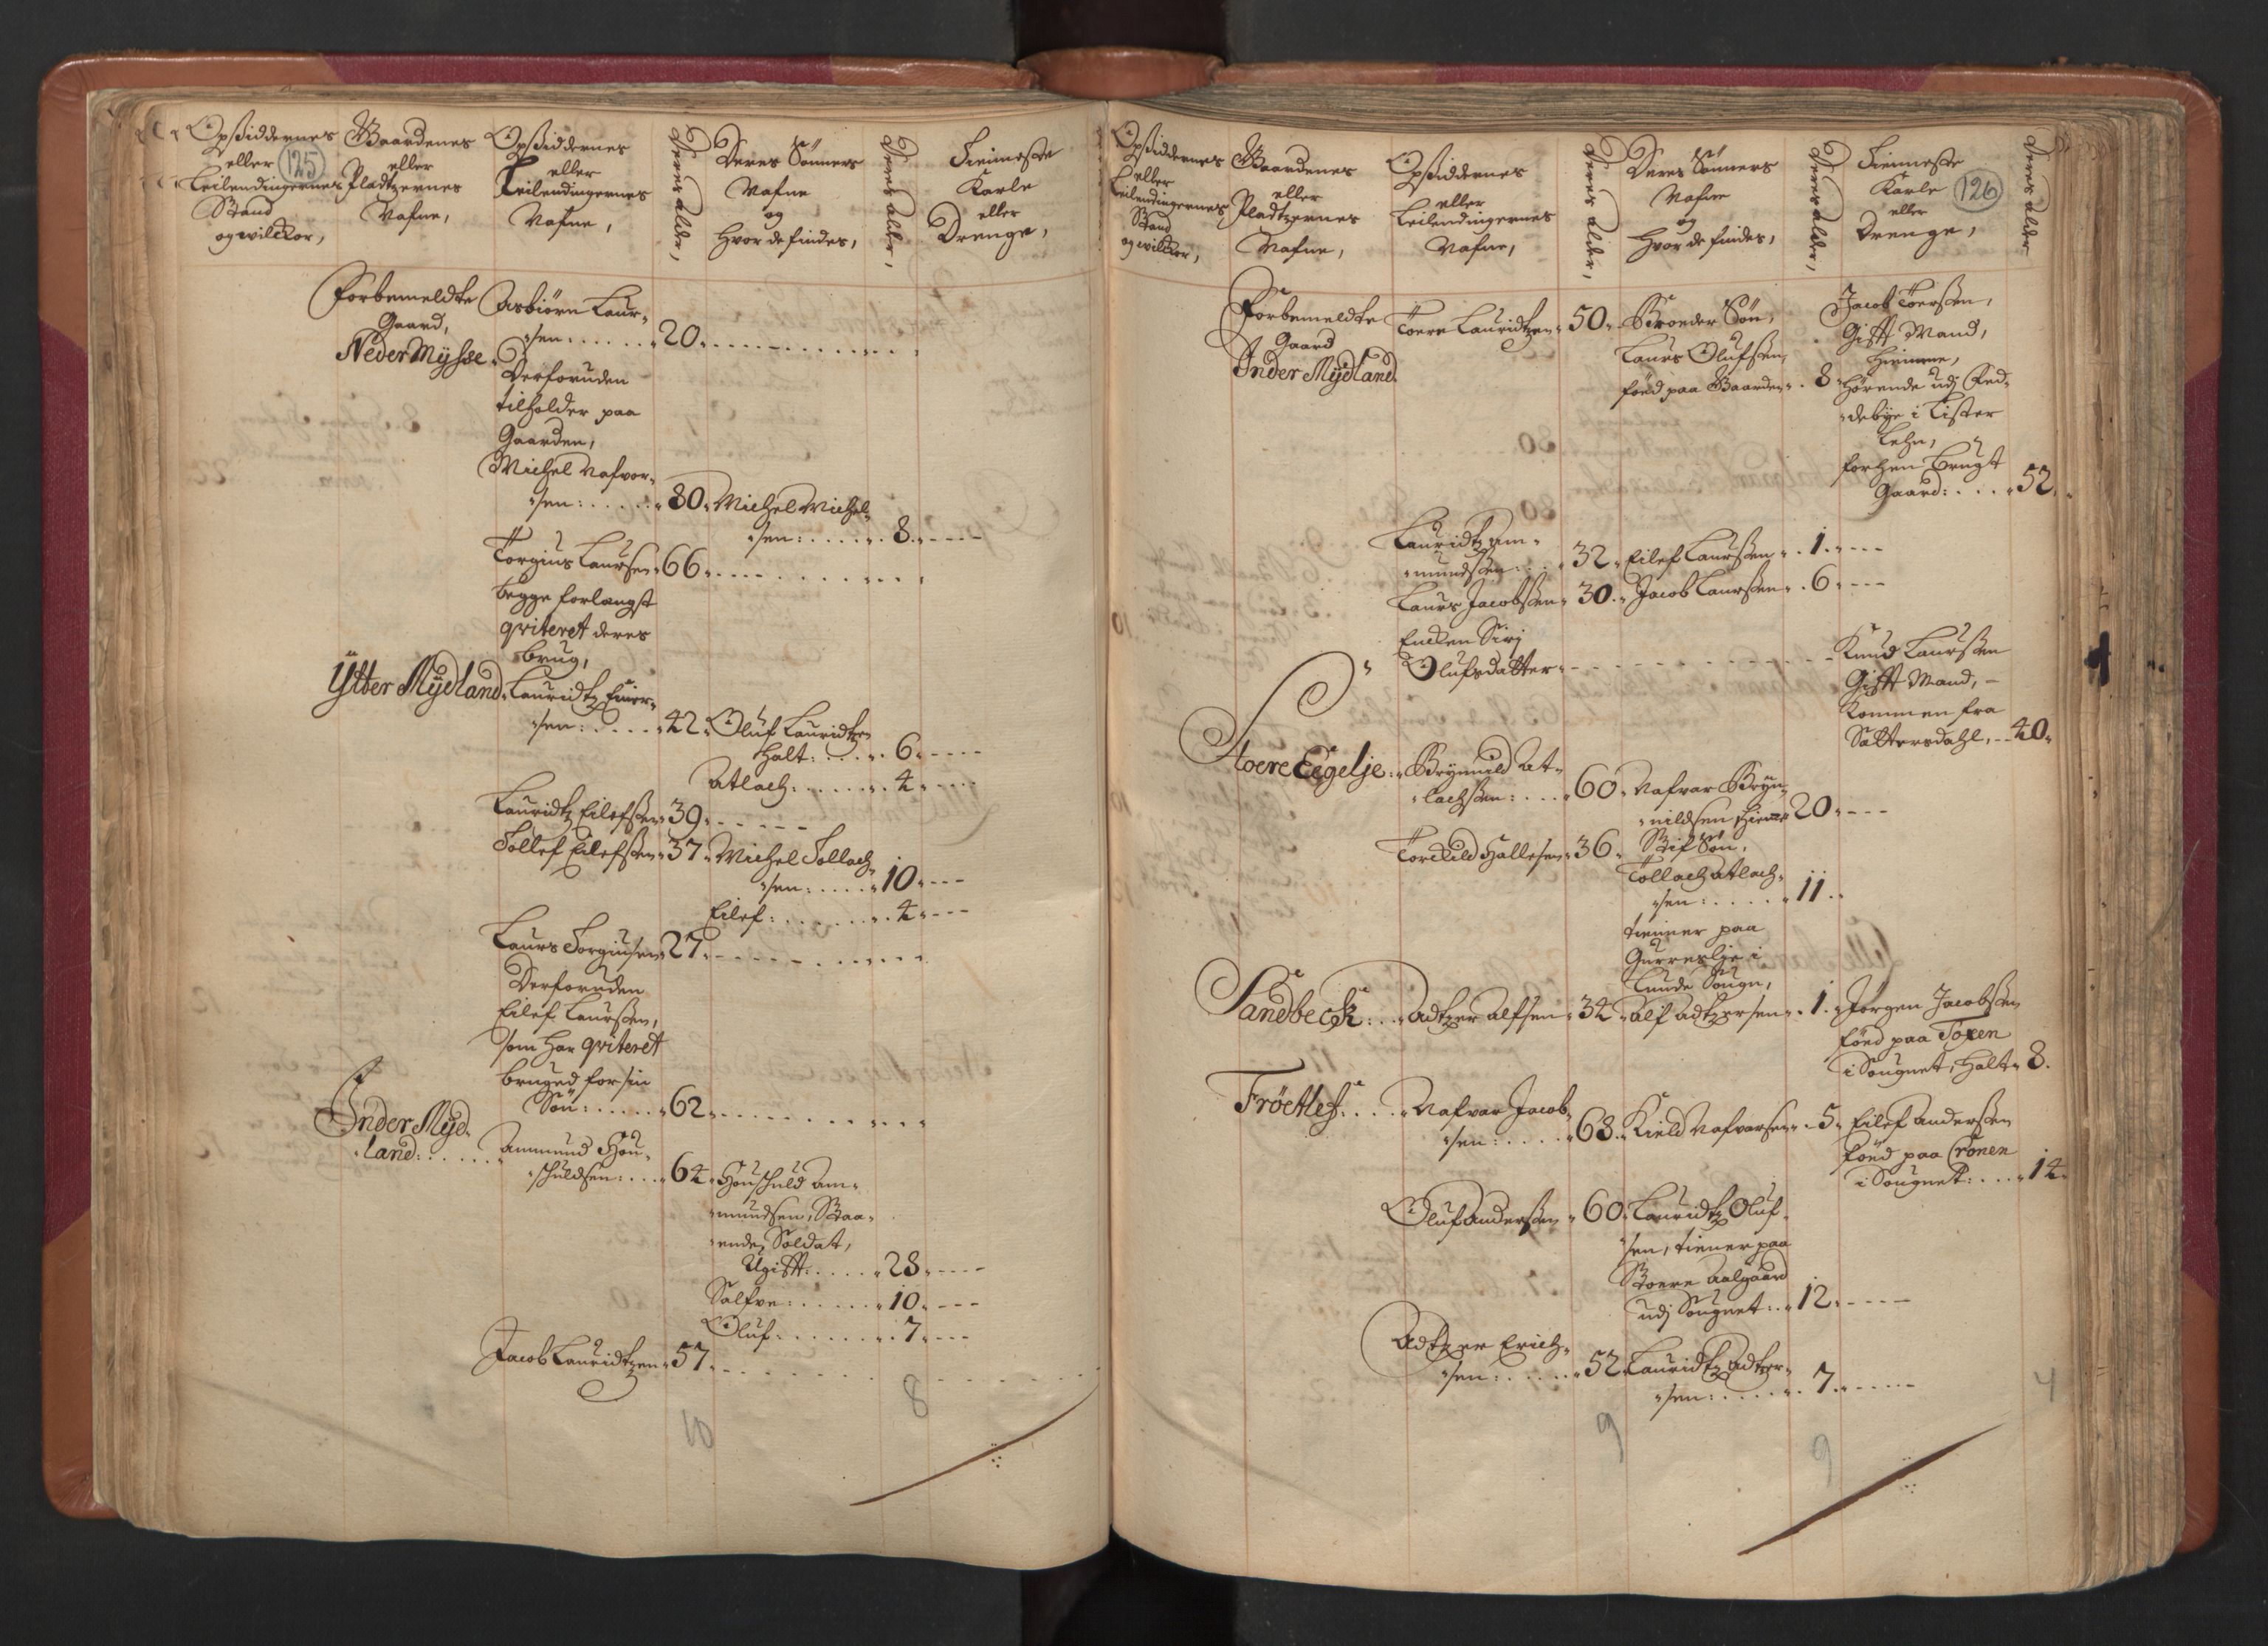 125
Opsiddernes
eller
Leilendingernes
Stand
og vilckor,
Gaardenes
eller
Pladtzernes
Nafne,
Opsiddernes
eller
Leilendingernes
Nafne,
Deres alder,
Deres Sönners
Nafne
og
Hvor de findes,
Deres alder,
Tienneste
Karle
eller
Drenge,
Forbemeldte
Gaard,
Neder Mysse
Asbiörn Laur-
sen: 20
Derforuden
tilholder paa
Gaarden,
Michel Nafvor-
sen: 80 Michel Michel-
sen: 8
Torgius Laursen 66
begge forlangst
qviteret deres
brug,
Ytter Mydland Lauridtz Einer-
sen: 42 Oluf Lauridtzen
Halt: 6
Atlach: 4
Lauridtz Eilefsen 39
Tollef Eilefsen 37 Michel Tollach-
sen: 10
Eilef: 4
Laurs Torgiusen 27
Derforuden
Eilef Laursen,
som har qviteret
bruged for sin
Sön: 62
Inder Myd-
land: Ammund Hou-
schuldsen: 64 Houschuld Am-
mundsen, Staa-
ende Soldat,
Ugift: 28
Salfve: 10
Oluf: 7
Jacob Lauridtzen 57
10 8
126
Opsiddernes
eller
Leilendingernes
Stand
og vilckor,
Gaardenes
eller
Pladtzernes
Nafne,
Opsiddernes
eller
Leilendingernes
Nafne,
Deres alder,
Deres Sönners
Nafne
og
Hvor de findes,
Deres alder,
Tienneste
Karle
eller
Drenge,
Deres alder
Forbemeldte
Gaard
Inder Mydland
Toere Lauridtzen 50 Broder Sön,
Laurs Olufsen,
föed paa Gaarden 8
Jacob Toersen,
Gift Mand,
Hiemme,
hörende udj Fed-
debye i Lister
Lehn,
forhen brugt
Gaard: 52
Lauridtz Am-
mundsen: 32 Eilef Laursen 1
Laurs Jacobsen 30 Jacob Laursen 6
Encken Sirj
Olufsdatter
Knud Laursen
Gift Mand,
kommen fra
Sættersdahl, 40
Stoere Eegelje: Brynnild At-
lachsen: 60 Nafvar Bryn-
nildsen, hiemme 20
Torckild Hallesen 36 Stif Sön,
Tollach Atlach-
sen: 11
tienner paa
Gurreslje i
Lunde Sougn,
Sandbeck: Adtzer Alfsen 34 Alf Adtzersen 1 Jörgen Jacobsen
föed paa Toxen
i Sougnet, halt 8
Fröetlef: Nafvar Jacob-
sen: 68 Kield Nafvarsen 5 Eilef Andersen
föed paa Cronen
i Sougnet: 14
Oluf Andersen 60 Lauridtz Oluf-
sen, tiener paa
Stoere Aalgaard
udj Sougnet: 12
Adtzer Erich-
sen: 52 Lauridtz Adtzer-
sen: 7
9 9 4